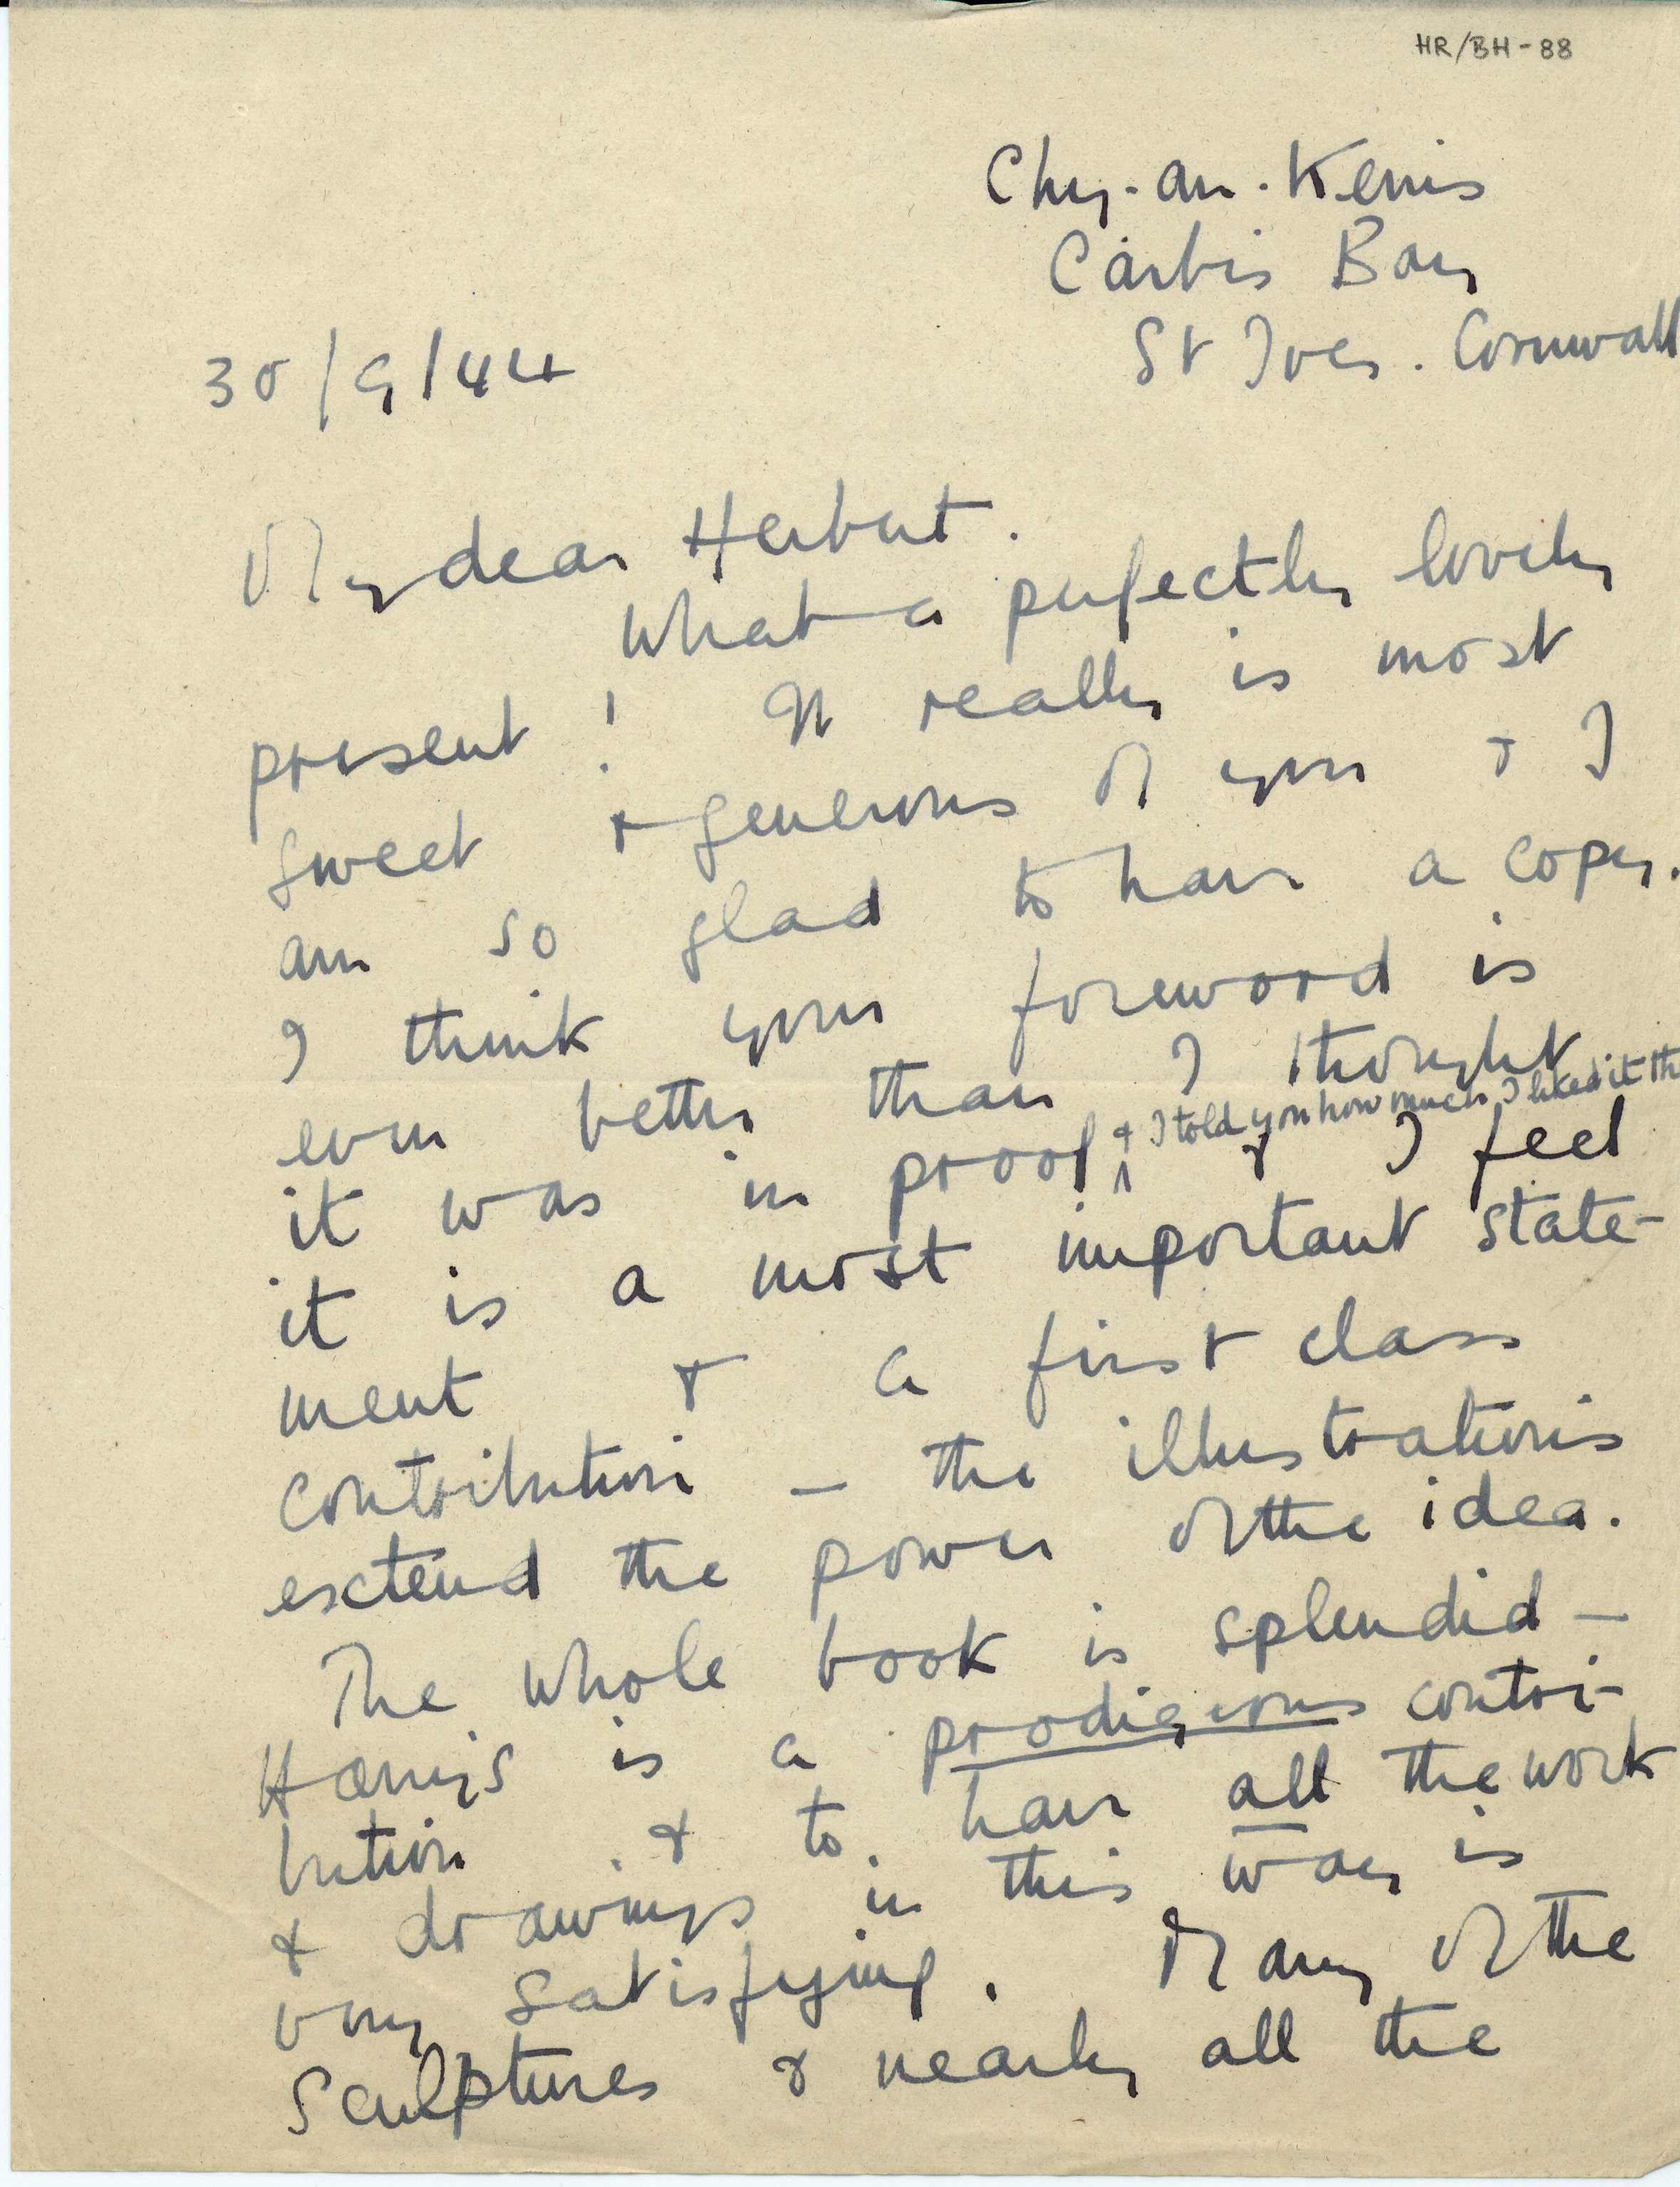 HR/BH-88
Chy-an-Kerris
Carbis Bay
St Ives. Cornwall
30/9/44
My dear Herbert.
What a perfectly lovely
present! It really is most
sweet & generous of you & I
am so glad to have a copy.
I think your foreword is
even better than I thought
it was in proof, & I told you how much I liked it th
& I feel
it is a most important state-
ment & a first class
contribution – the illustrations
extend the power of the idea.
The whole book is splendid –
Harry's is a prodigeous contri-
bution & to have all the work
& drawings in this way is
very satisfying. Many of the
Sculptures & nearly all the